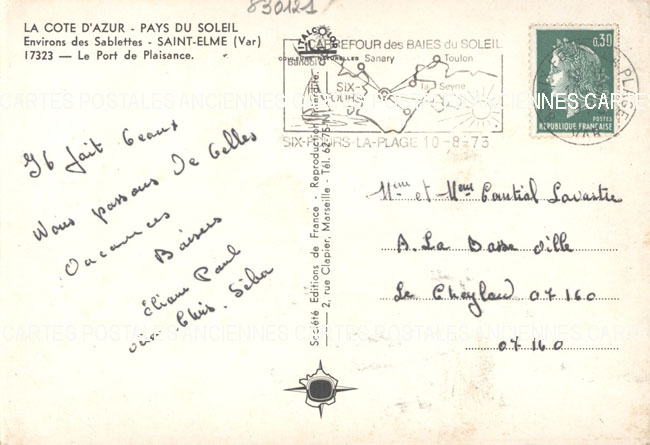 830121
LA COTE D'AZUR - PAYS DU SOLEIL
Environs des Sablettes - SAINT-ELME (Var)
17323 — Le Port de Plaisance.
ITALCOLOR
COULEURS NATURELLES
CARREFOUR des BAIES du SOLEIL
Bandol
Sanary
Toulon
SIX-
FOURS
la Seyne
SIX-FOURS-LA-PLAGE 10-8-73
PLAGE
VAR
0,30
POSTES
REPUBLIQUE FRANÇAISE
CARTES POSTALES ANCIENNES CARTES POSTALES ANCIENNES CARTES
Il fait beau
Nous passons de belles
vacances
Baisers
Eliane Paul
Société Editions de France - Reproduction interdite.
— 2, rue Clapier, Marseille - Tél. 62-75
Mme et Mme Lavastre
A La Basse Ville
Le Cheylard 07160
07160
CARTES POSTALES ANCIENNES CARTES POSTALES ANCIENNES CARTES